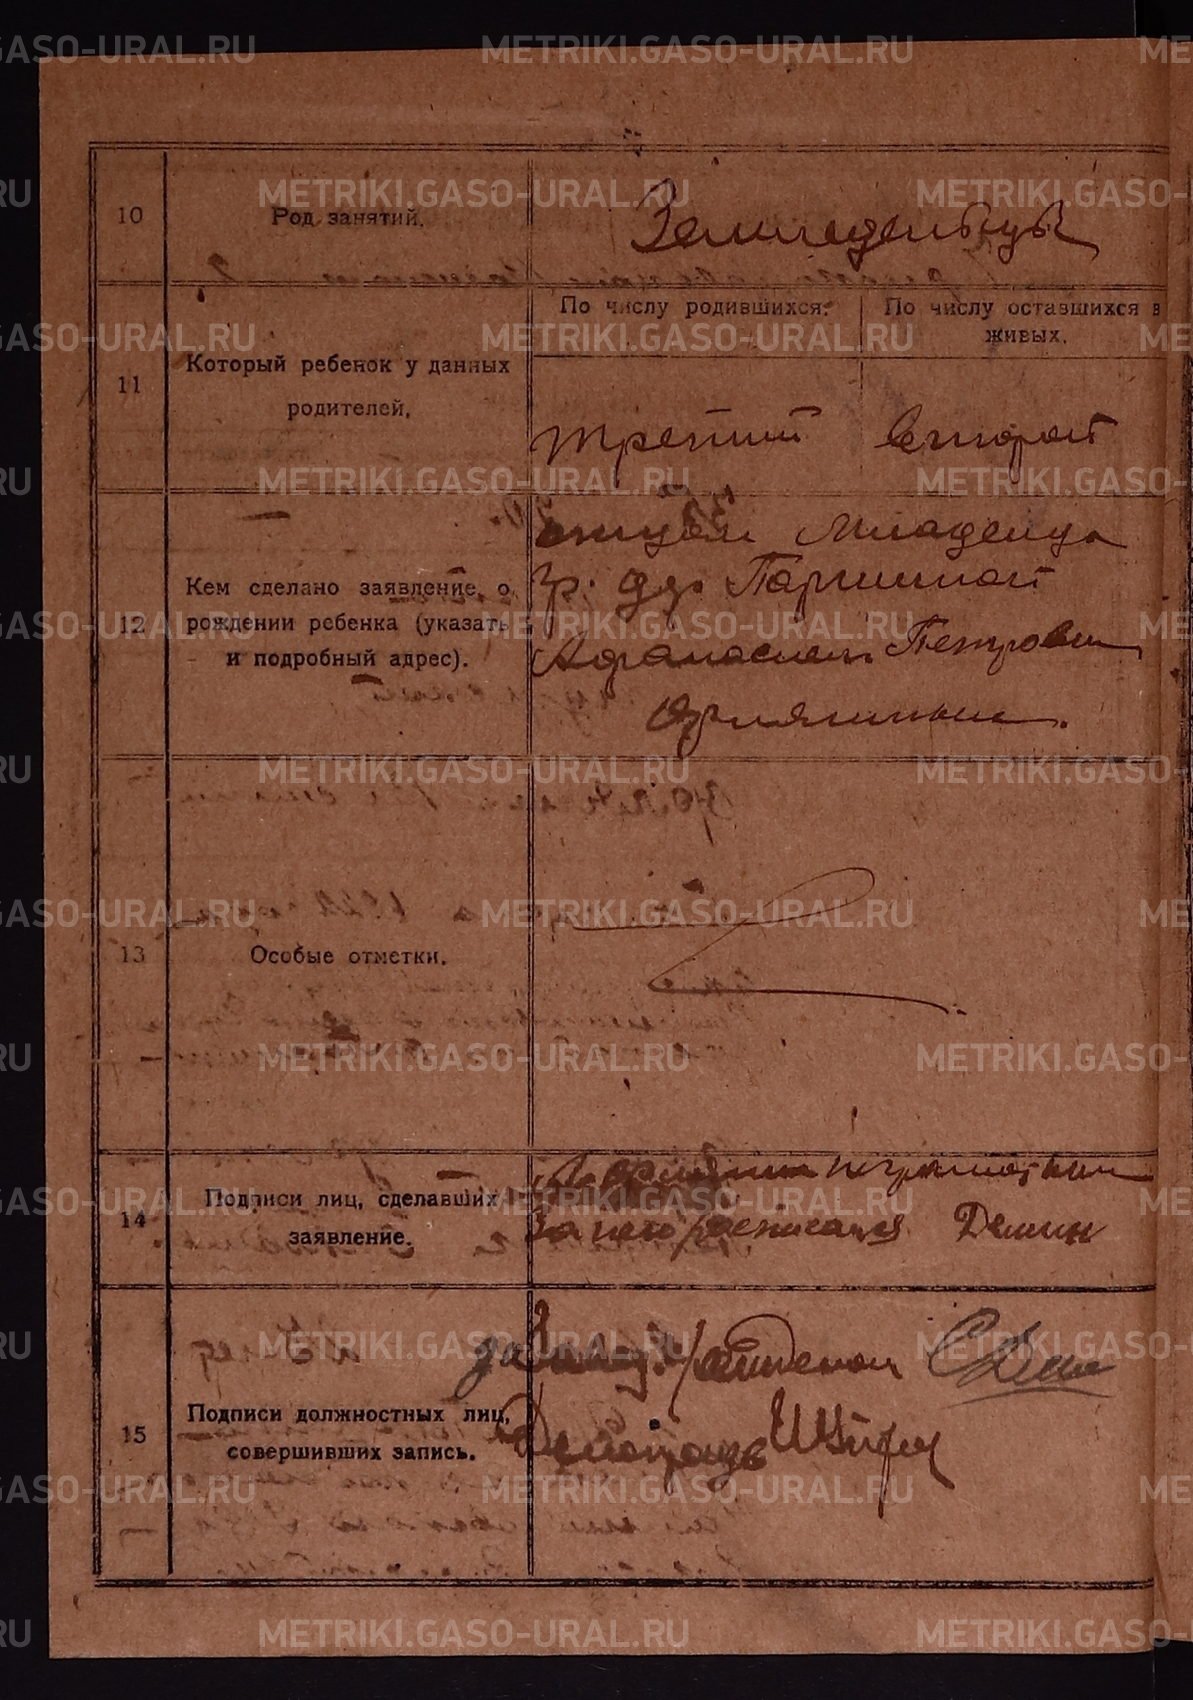 METRIKI.GASO-URAL.RU
10
Род занятий.
Земледельцы
11
Который ребенок у данных
родителей.
По числу родившихся:
По числу оставшихся в
живых.
третий
второй
12
Кем сделано заявление о
рождении ребенка (указать
и подробный адрес).
отцом младенца
гр. дер.
Афанасием Петровым
13
Особые отметки.
14
Подписи лиц, сделавших
заявление.
неграмотный
За него расписался Демин
15
Подписи должностных лиц,
совершивших запись.
за
Делопроизв